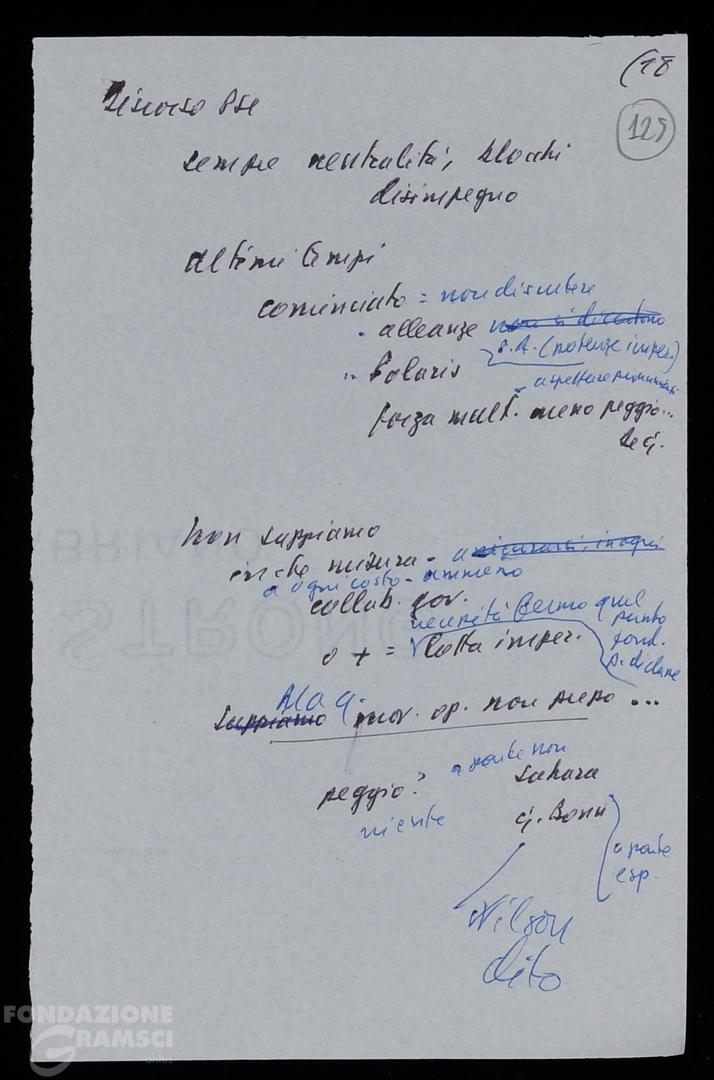 (18
125
Discorso PSI
sempre neutralità, blocchi
disimpegno
ultimi tempi
cominciato = non discutere
- alleanze non si discutono
S.A. (potenze imper.)
Polaris
aspettare
forza mult. meno peggio...
non sappiamo
in che misura -
a ogni costo - ammeno
collab. gov.
necessità fermo quel
punto
fond.
p. di classe
o + = lotta imper.
Ma q.
Sappiamo mov. op. non può ...
peggio?
a parte non
Sahara
niente
q. Bonn
a parte
esp.
Wilson
dito
FONDAZIONE
GRAMSCI
onlus
BRIANO
STRONG